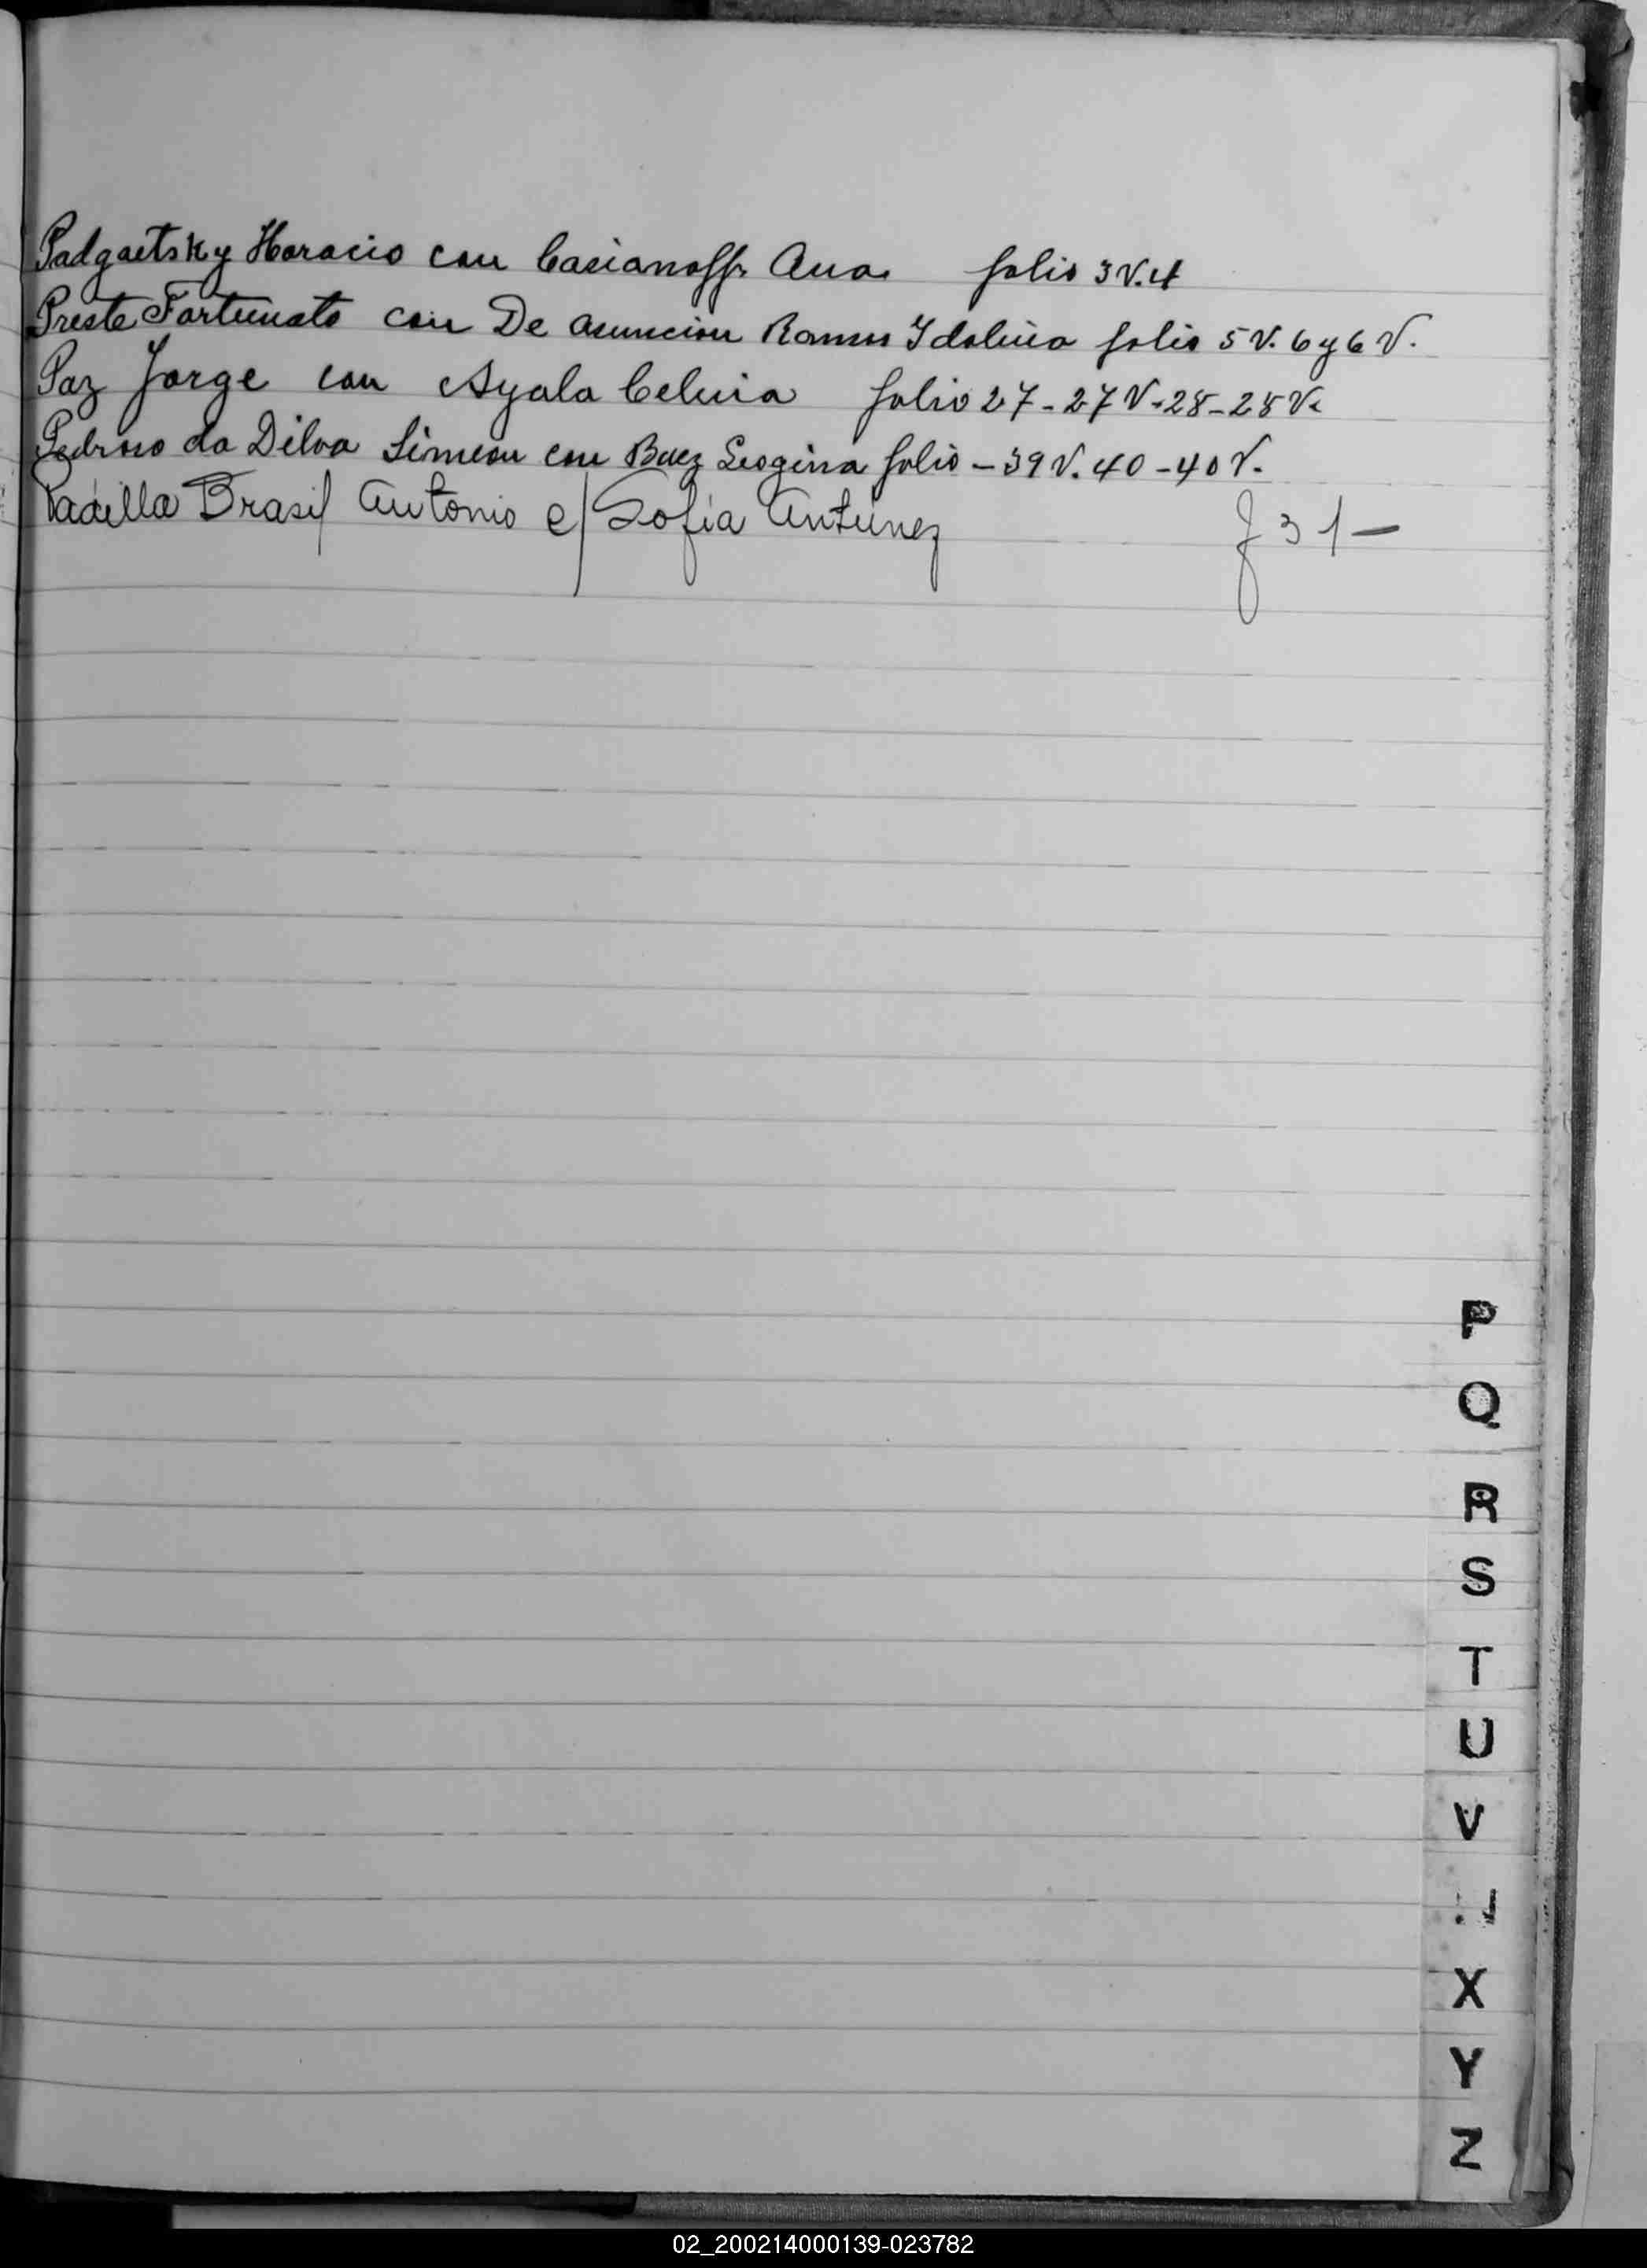 Padgaetsky Horacio con Casianoff. Ana. folio 3 V. 4
Preste Fortunato con De Asuncion Ramos Idalina folio 5 V. 6 y 6 V.
Paz Jorge con Ayala Celina folio 27 - 27 V - 28 - 28 V.
Pedroso da Dilva Simeon con Baez Leogina folio - 39 V. 40 - 40 V.
Padilla Brasil Antonio c/ Sofia Antunez f 31 -
P
Q
R
S
T
U
V
X
Y
Z
02_200214000139-023782